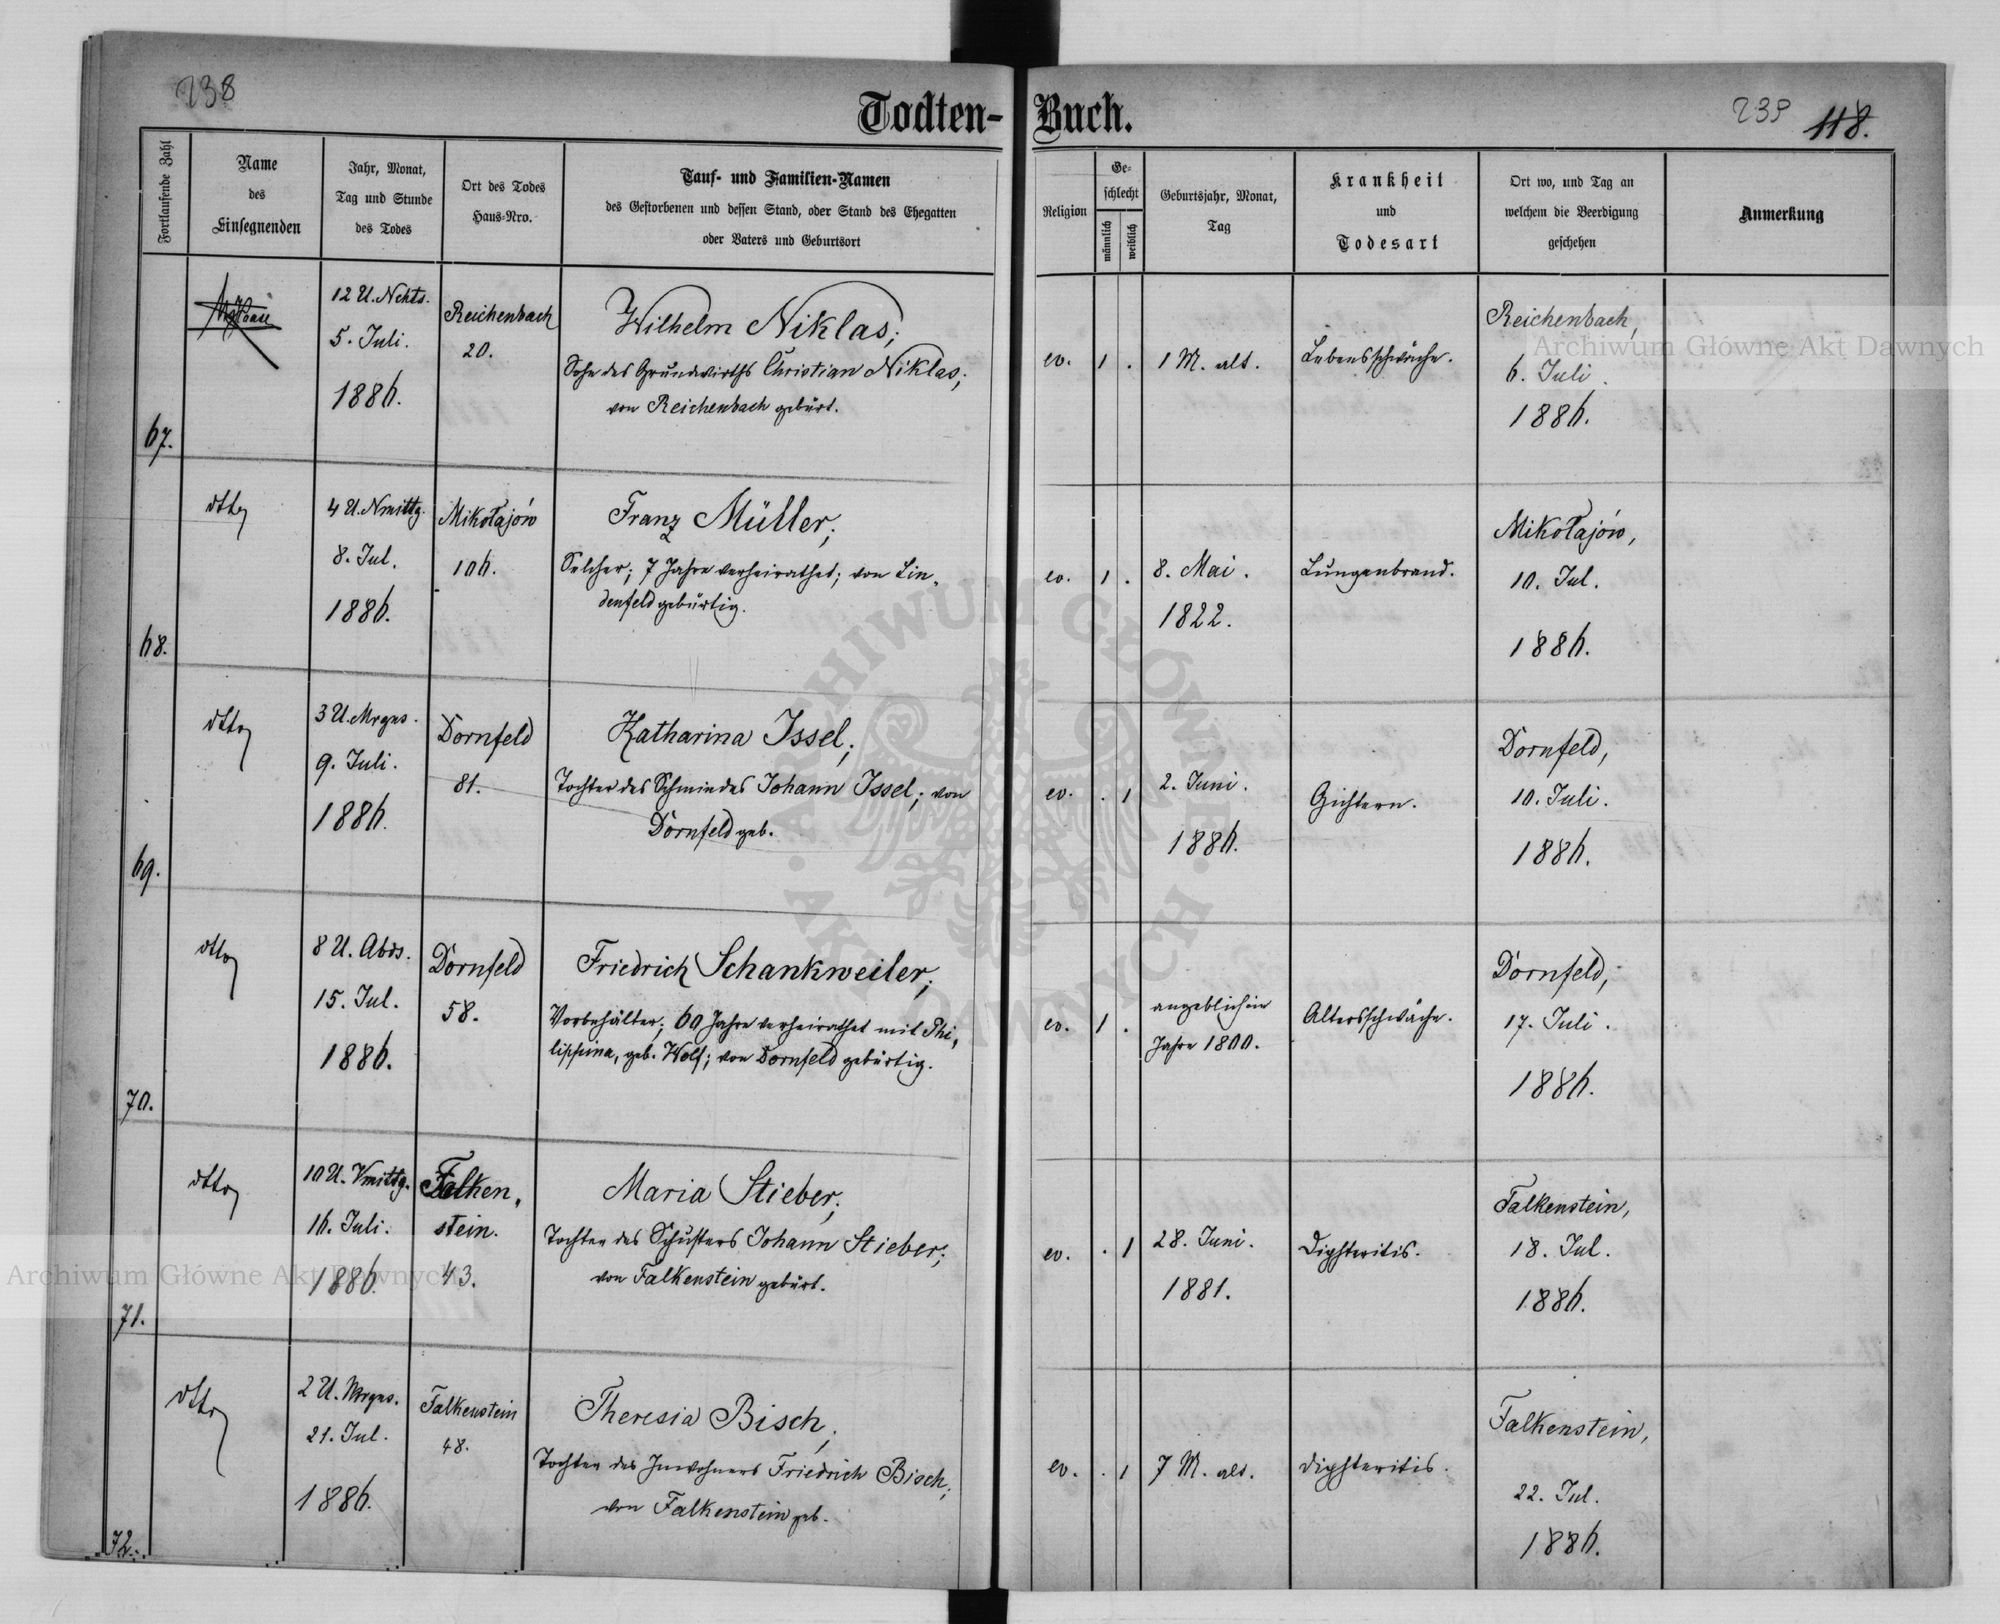 238
Todten-Buch.
239 118.
Fortlaufende Zahl
Name
des
Einsegnenden
Jahr, Monat,
Tag und Stunde
des Todes
Ort des Todes
Haus-Nro.
Tauf- und Familien-Namen
des Gestorbenen und dessen Stand, oder Stand des Ehegatten
oder Vaters und Geburtsort
Religion
Ge-
schlecht
männlich
weiblich
Geburtsjahr, Monat,
Tag
Krankheit
und
Todesart
Ort wo, und Tag an
welchem die Beerdigung
geschehen
Anmerkung
67.
12 U. Nchts.
5. Juli.
1886.
Reichenbach
20.
Wilhelm Niklas;
Sohn des Grundwirths Christian Niklas;
von Reichenbach gebürt.
ev. 1 .
1 M. alt.
Lebensschwäche.
Reichenbach,
6. Juli.
1886.
68.
dtto
4 U. Nmittg.
8. Jul.
1886.
Mikołajów
106.
Franz Müller;
Selcher; 7 Jahre verheirathet; von Lin-
denfeld gebürtig.
ev. 1 .
8. Mai.
1822.
Lungenbrand.
Mikołajów,
10. Jul.
1886.
69.
dtto
3 U. Mrgns.
9. Juli.
1886.
Dornfeld
81.
Katharina Issel;
Tochter des Schmiedes Johann Issel; von
Dornfeld geb.
ev. . 1
2. Juni.
1886.
Gichtern.
Dornfeld,
10. Juli.
1886.
70.
dtto
8 U. Abds.
15. Jul.
1886.
Dornfeld
58.
Friedrich Schankweiler;
Vorbehälter; 60 Jahre verheirathet mit Phi-
lippina, geb. Wolf; von Dornfeld gebürtig.
ev. 1 .
angeblich im
Jahre 1800.
Altersschwäche.
Dornfeld,
17. Juli.
1886.
71.
dtto
10 U. Vmittg.
16. Juli.
1886.
Falken-
stein.
43.
Maria Stieber;
Tochter des Schusters Johann Stieber;
von Falkenstein gebürt.
ev. . 1
28. Juni.
1881.
Diphteritis.
Falkenstein,
18. Jul.
1886.
72.
dtto
2 U. Mrgns.
21. Jul.
1886.
Falkenstein
48.
Theresia Bisch;
Tochter des Inwohners Friedrich Bisch;
von Falkenstein geb.
ev. . 1
7 M. alt.
Diphteritis.
Falkenstein,
22. Jul.
1886.
Archiwum Główne Akt Dawnych
Archiwum Główne Akt Dawnych
ARCHIWUM GŁÓWNE AKT DAWNYCH